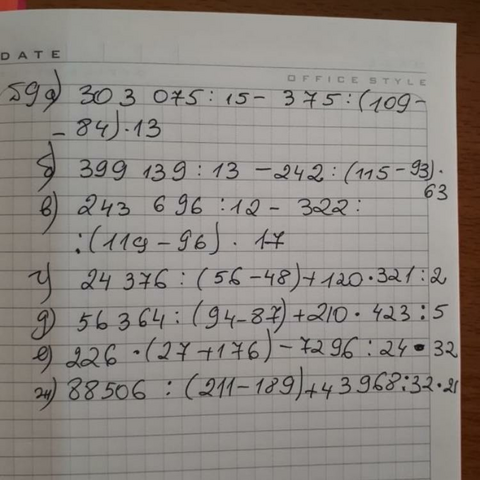 DATE
OFFICE STYLE
59 а) 303 075 : 15 - 375 : (109 -
- 84) · 13
б) 399 139 : 13 - 242 : (115 - 93) ·
63
в) 243 696 : 12 - 322 :
: (119 - 96) · 17
г) 24 376 : (56 - 48) + 120 · 321 : 2
д) 56 364 : (94 - 87) + 210 · 423 : 5
е) 226 · (27 + 176) - 7296 : 24 · 32
ж) 88506 : (211 - 189) + 43968 : 32 · 21